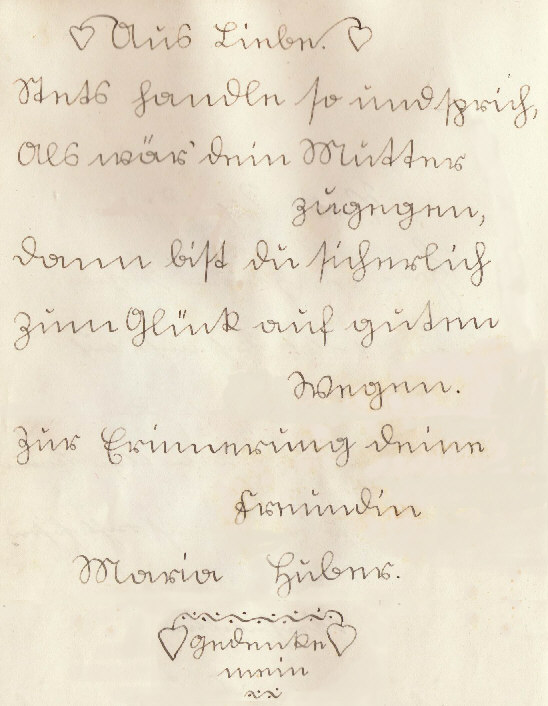 Aus Liebe.
Stets handle so und sprich,
Als wär' dein Mutter
zugegen,
dann bist du sicherlich
zum Glück auf guten
Wegen.
Zur Erinnerung deine
Freundin
Maria Huber.
gedenke
mein